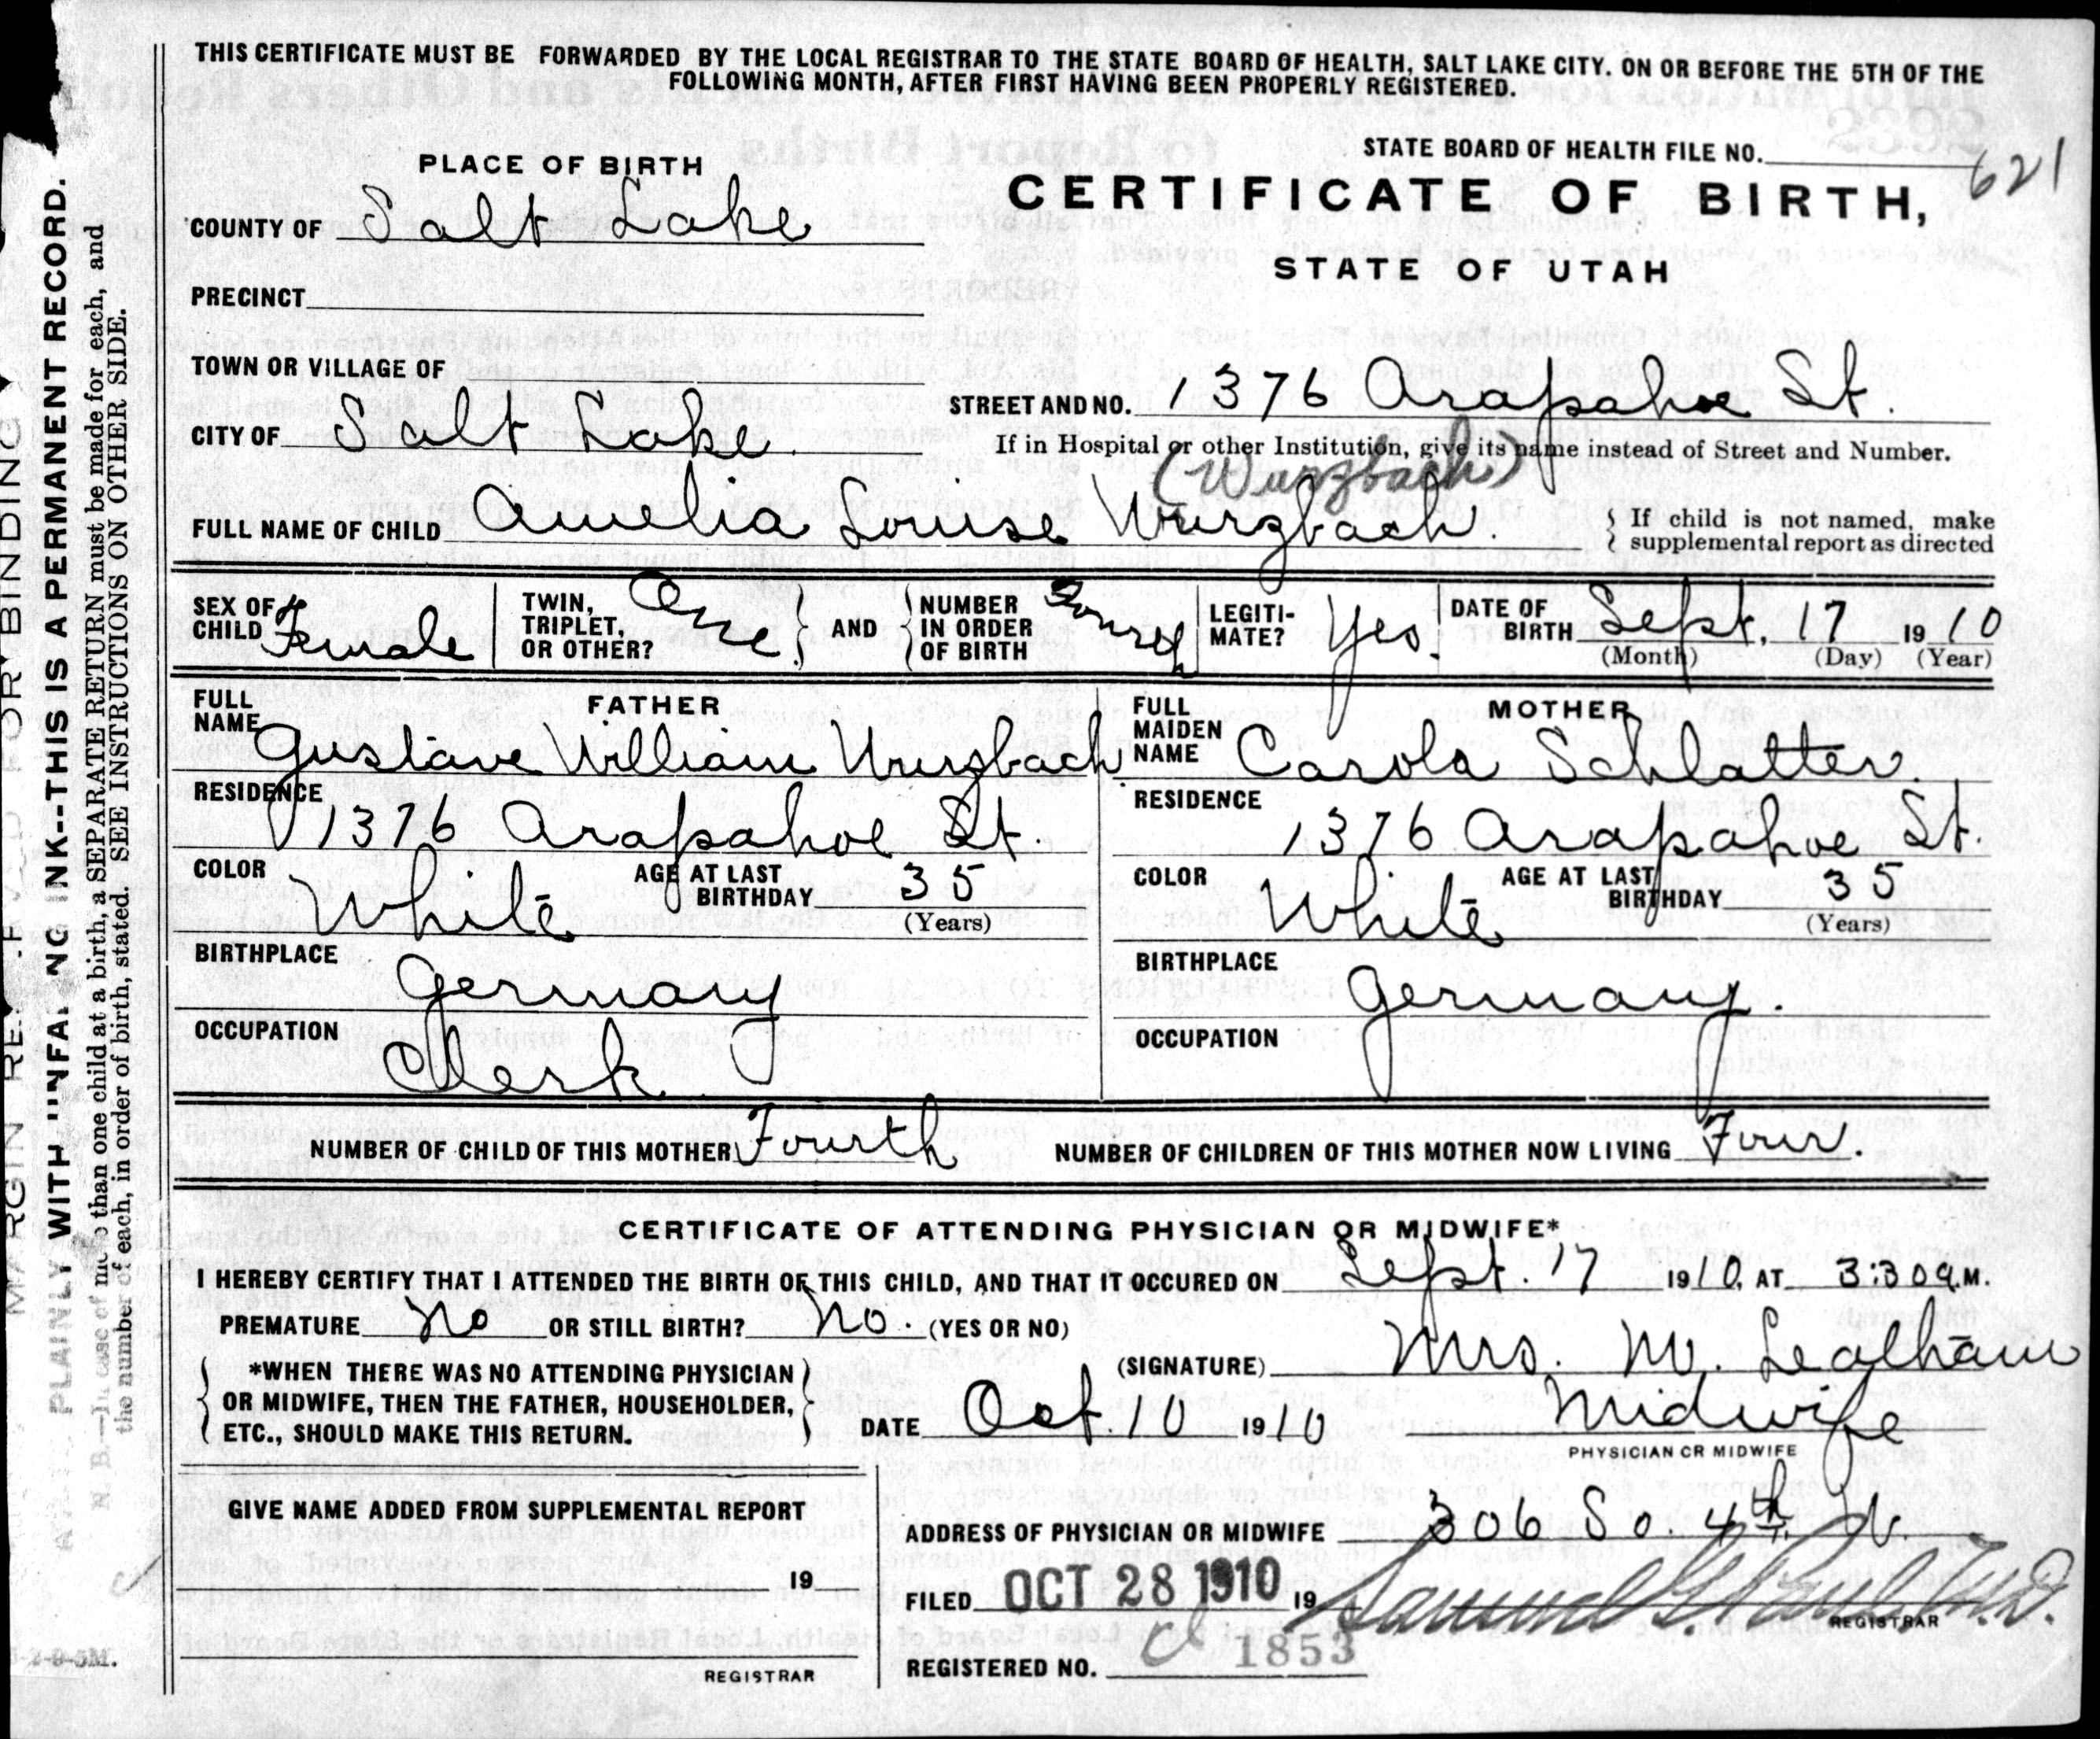 THIS CERTIFICATE MUST BE FORWARDED BY THE LOCAL REGISTRAR TO THE STATE BOARD OF HEALTH, SALT LAKE CITY. ON OR BEFORE THE 5TH OF THE
FOLLOWING MONTH, AFTER FIRST HAVING BEEN PROPERLY REGISTERED.
STATE BOARD OF HEALTH FILE NO. 621
PLACE OF BIRTH
CERTIFICATE OF BIRTH,
STATE OF UTAH
COUNTY OF Salt Lake
PRECINCT
TOWN OR VILLAGE OF
CITY OF Salt Lake.
STREET AND NO. 1376 Arapahoe St.
If in Hospital or other Institution, give its name instead of Street and Number.
(Wurzbach)
FULL NAME OF CHILD Amelia Louise Wurzbach.
If child is not named, make
supplemental report as directed
SEX OF CHILD Female
TWIN, TRIPLET, OR OTHER? One.
AND
NUMBER IN ORDER OF BIRTH Fourth
LEGITI-MATE? Yes.
DATE OF BIRTH Sept. 17 1910
(Month) (Day) (Year)
FATHER
FULL NAME Gustave William Wurzbach
RESIDENCE 1376 Arapahoe St.
COLOR White
AGE AT LAST BIRTHDAY 35
(Years)
BIRTHPLACE Germany
OCCUPATION Clerk
MOTHER
FULL MAIDEN NAME Carola Schlatter.
RESIDENCE 1376 Arapahoe St.
COLOR White
AGE AT LAST BIRTHDAY 35
(Years)
BIRTHPLACE Germany.
OCCUPATION
NUMBER OF CHILD OF THIS MOTHER Fourth
NUMBER OF CHILDREN OF THIS MOTHER NOW LIVING Four.
CERTIFICATE OF ATTENDING PHYSICIAN OR MIDWIFE*
I HEREBY CERTIFY THAT I ATTENDED THE BIRTH OF THIS CHILD, AND THAT IT OCCURED ON Sept. 17 1910, AT 3:30 a.M.
PREMATURE No OR STILL BIRTH? No. (YES OR NO)
*WHEN THERE WAS NO ATTENDING PHYSICIAN
OR MIDWIFE, THEN THE FATHER, HOUSEHOLDER,
ETC., SHOULD MAKE THIS RETURN.
(SIGNATURE) Mrs. M. Lealham
DATE Oct. 10 1910
Midwife
PHYSICIAN OR MIDWIFE
GIVE NAME ADDED FROM SUPPLEMENTAL REPORT
19
REGISTRAR
ADDRESS OF PHYSICIAN OR MIDWIFE 306 So. 4th W.
FILED OCT 28 1910 19
Samuel G. Paul M.D.
REGISTRAR
REGISTERED NO. 1853
2-9-5M.
MARGIN FOR BINDING
PLAINLY WITH UNFADING INK--THIS IS A PERMANENT RECORD.
N. B.—In case of more than one child at a birth, a SEPARATE RETURN must be made for each, and
the number of each, in order of birth, stated. SEE INSTRUCTIONS ON OTHER SIDE.